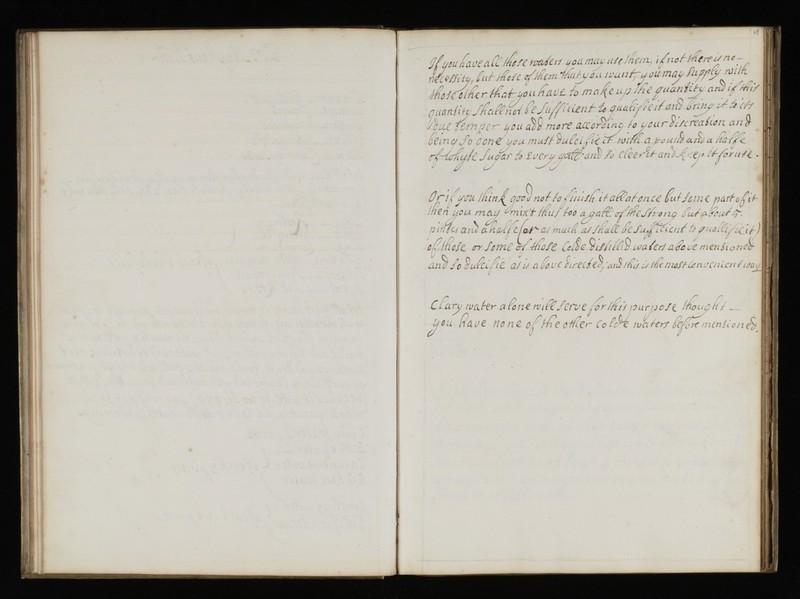 If you have all those waters you may use them, if not there is no
necessity, but those of them that you want, you may supply with
those other that you have to make up the quantity and if this
quantity shall not be sufficient to qualifie it and bring it to its
due temper you add more according to your discreation and
being so done you must dulcifie it with a pound and a halfe
of whyte sugar to every gall and to cleer it and keep it for use.
Or if you think good not to finish it all at once but some part of it
then you may mixt thus too a gall of the strong but about 5
pintes and a halfe (or as much as shall be sufficient to quallifie it)
of those or some of those colde distilld waters above mentioned
and so dulcifie as is above directed, and this is the most convenient way
Clary water alone will serve for this purpose thought
you have none of the other colde waters before mentioned.